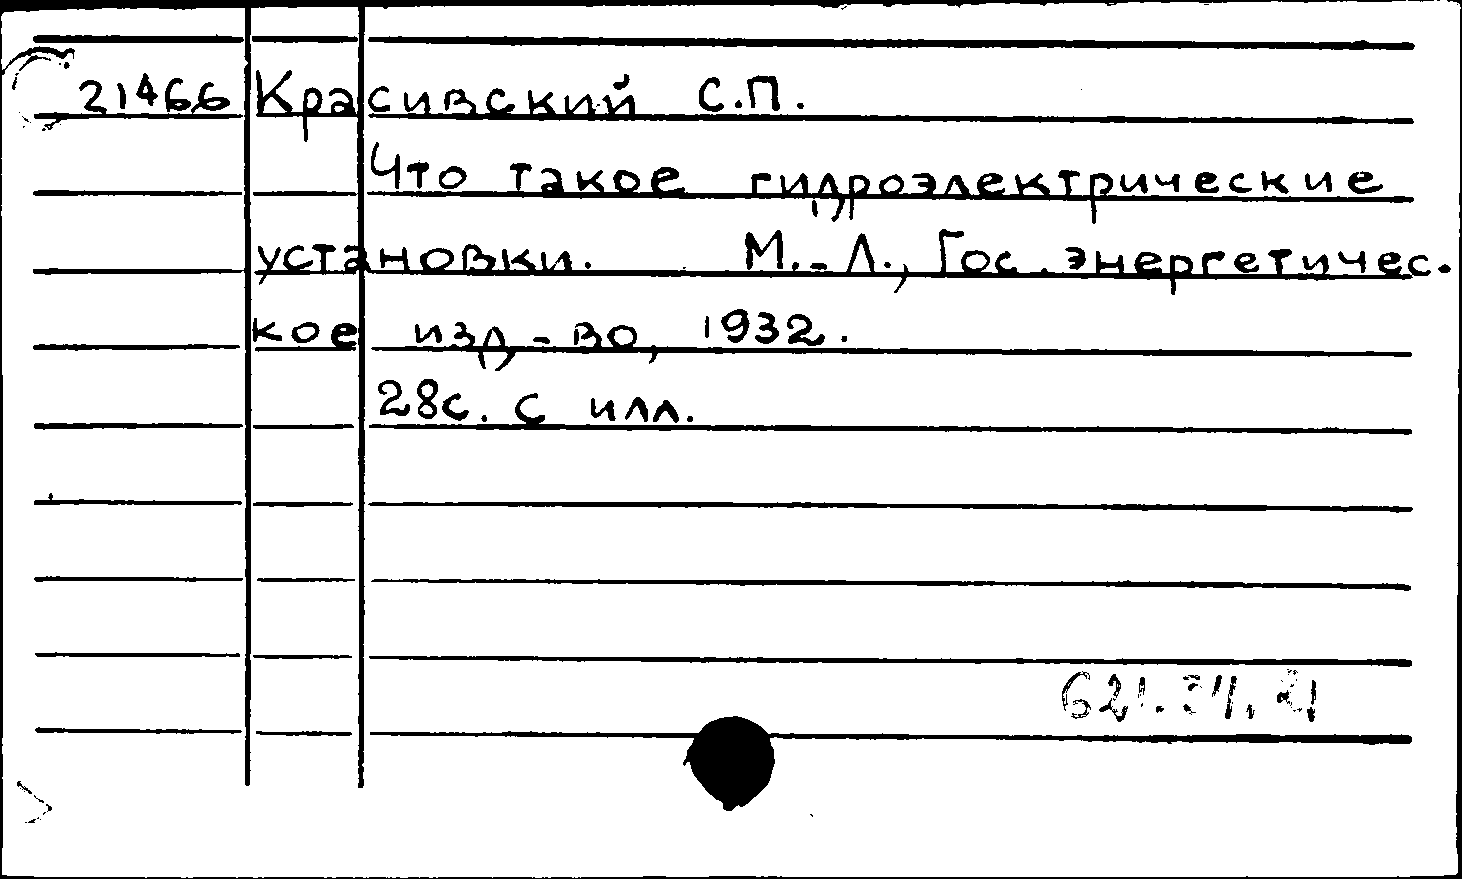 21466 Красивский С.П.
Что такое гидроэлектрические
установки. М.-Л., Гос. энергетичес.
кое изд-во, 1932.
28с. с илл.